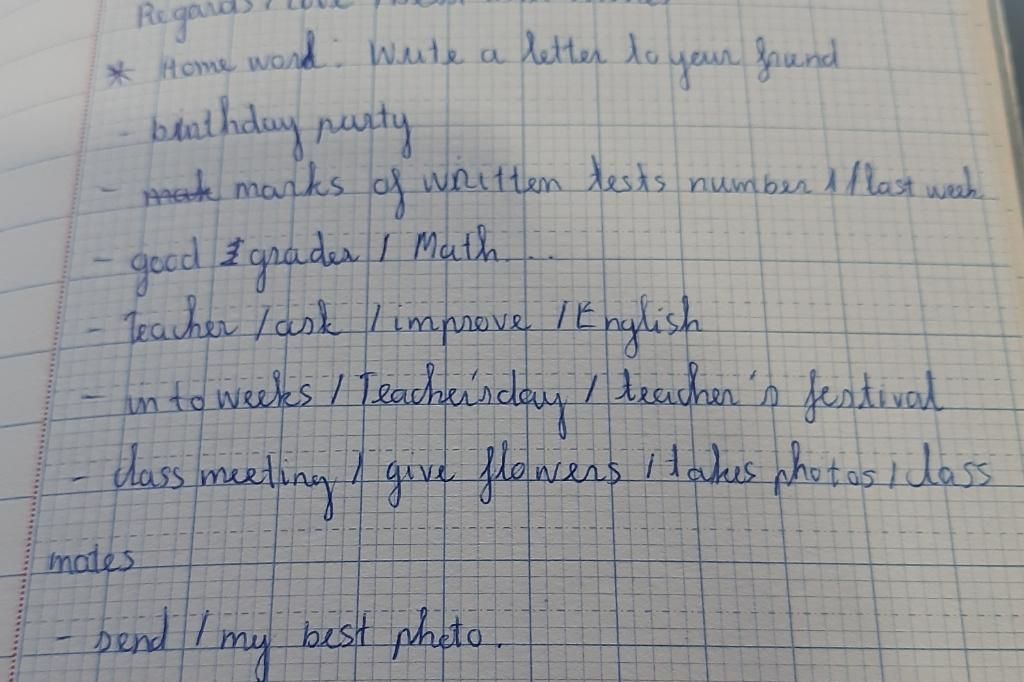 Regards / love /
* Home word: Write a letter to your friend
- birthday party
- marks of written tests number 1 / last week
- good grades / Math...
- Teacher / ask / improve / English
- in to weeks / Teacher'sday / teacher's festival
- class meeting / give flowers / takes photos / class
mates
- send / my best photo.